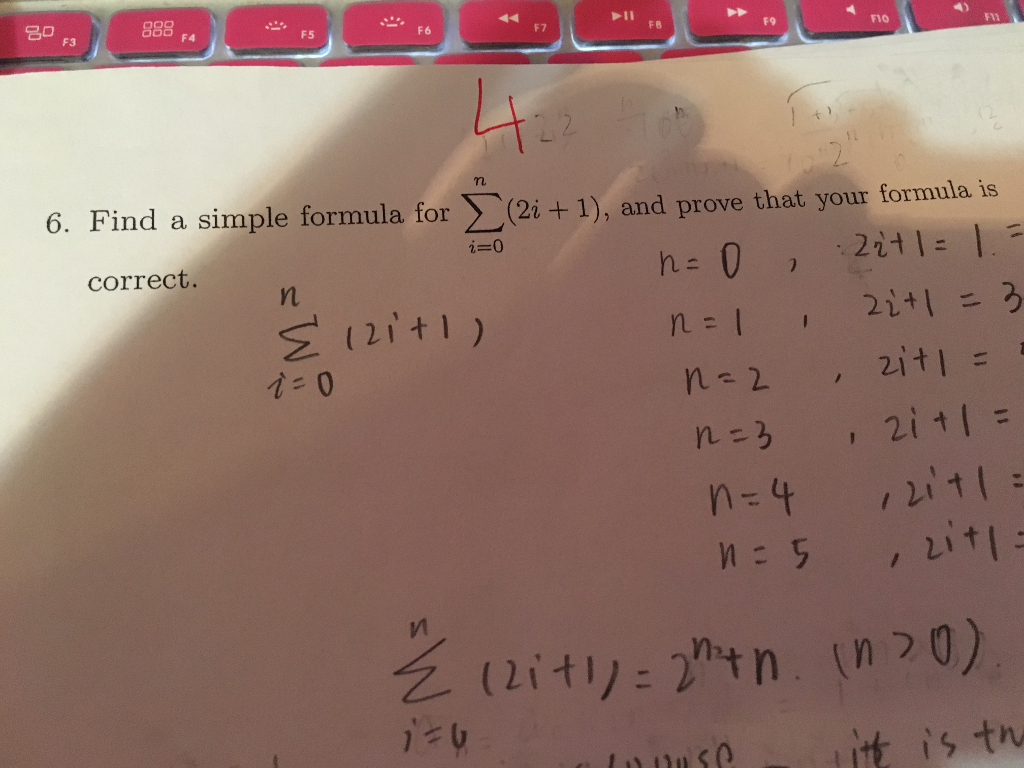 F3 F4 F5 F6 F7 F8 F9 F10 F11
4
22
6. Find a simple formula for \sum_{i=0}^{n} (2i + 1), and prove that your formula is
correct.
n = 0 , 2i+1 = 1. =
\sum_{i=0}^{n} (2i+1)
n = 1 , 2i+1 = 3
n = 2 , 2i+1 =
n = 3 , 2i+1 =
n = 4 , 2i+1 =
n = 5 , 2i+1 =
n
Σ (2i+1) = 2^{n^2} + n. (n > 0).
it is